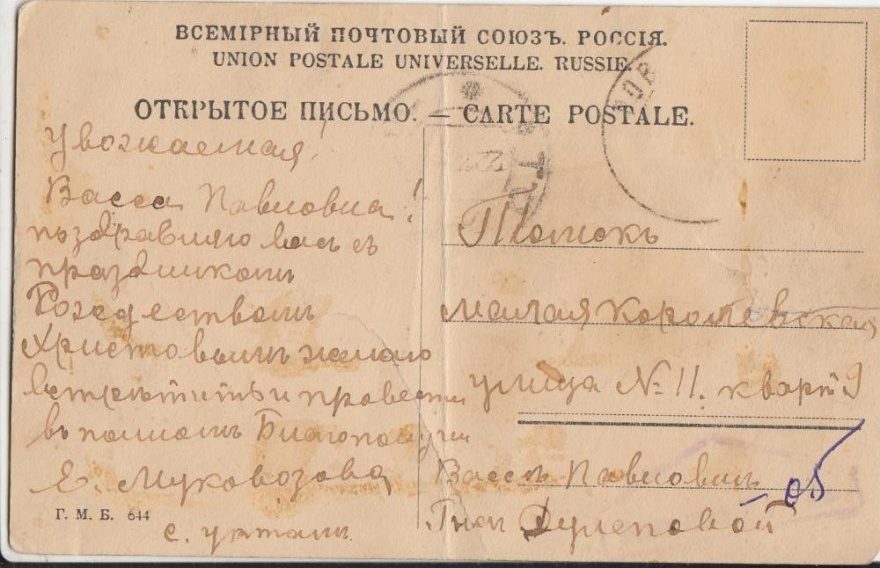 ВСЕМІРНЫЙ ПОЧТОВЫЙ СОЮЗЪ. РОССІЯ.
UNION POSTALE UNIVERSELLE. RUSSIE.
ОТКРЫТОЕ ПИСЬМО. — CARTE POSTALE.
Уволсаемая!
Васса Павловна!
поздравляю васъ съ
праздникомъ
Рождествомъ
Христовымъ желаю
встретить и провести
въ полномъ Благополучіи
Е. Муковозова
Томскъ
малая Королевская
улица № 11. кварт 9
Вассѣ Павловнѣ
Г. М. Б. 644